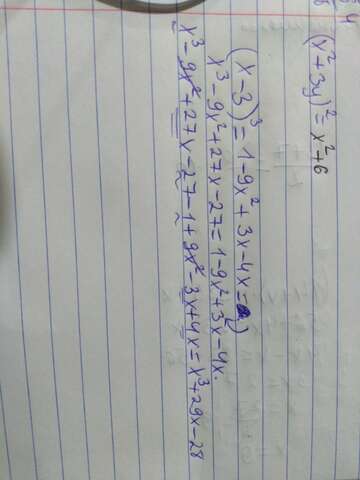 (x²+3y)² = x²+6
(x-3)³ = 1-9x²+3x-4x=
x³-9x²+27x-27=1-9x²+3x-4x.
x³-9x²+27x-27-1+9x²-3x+4x=x³+29x-28